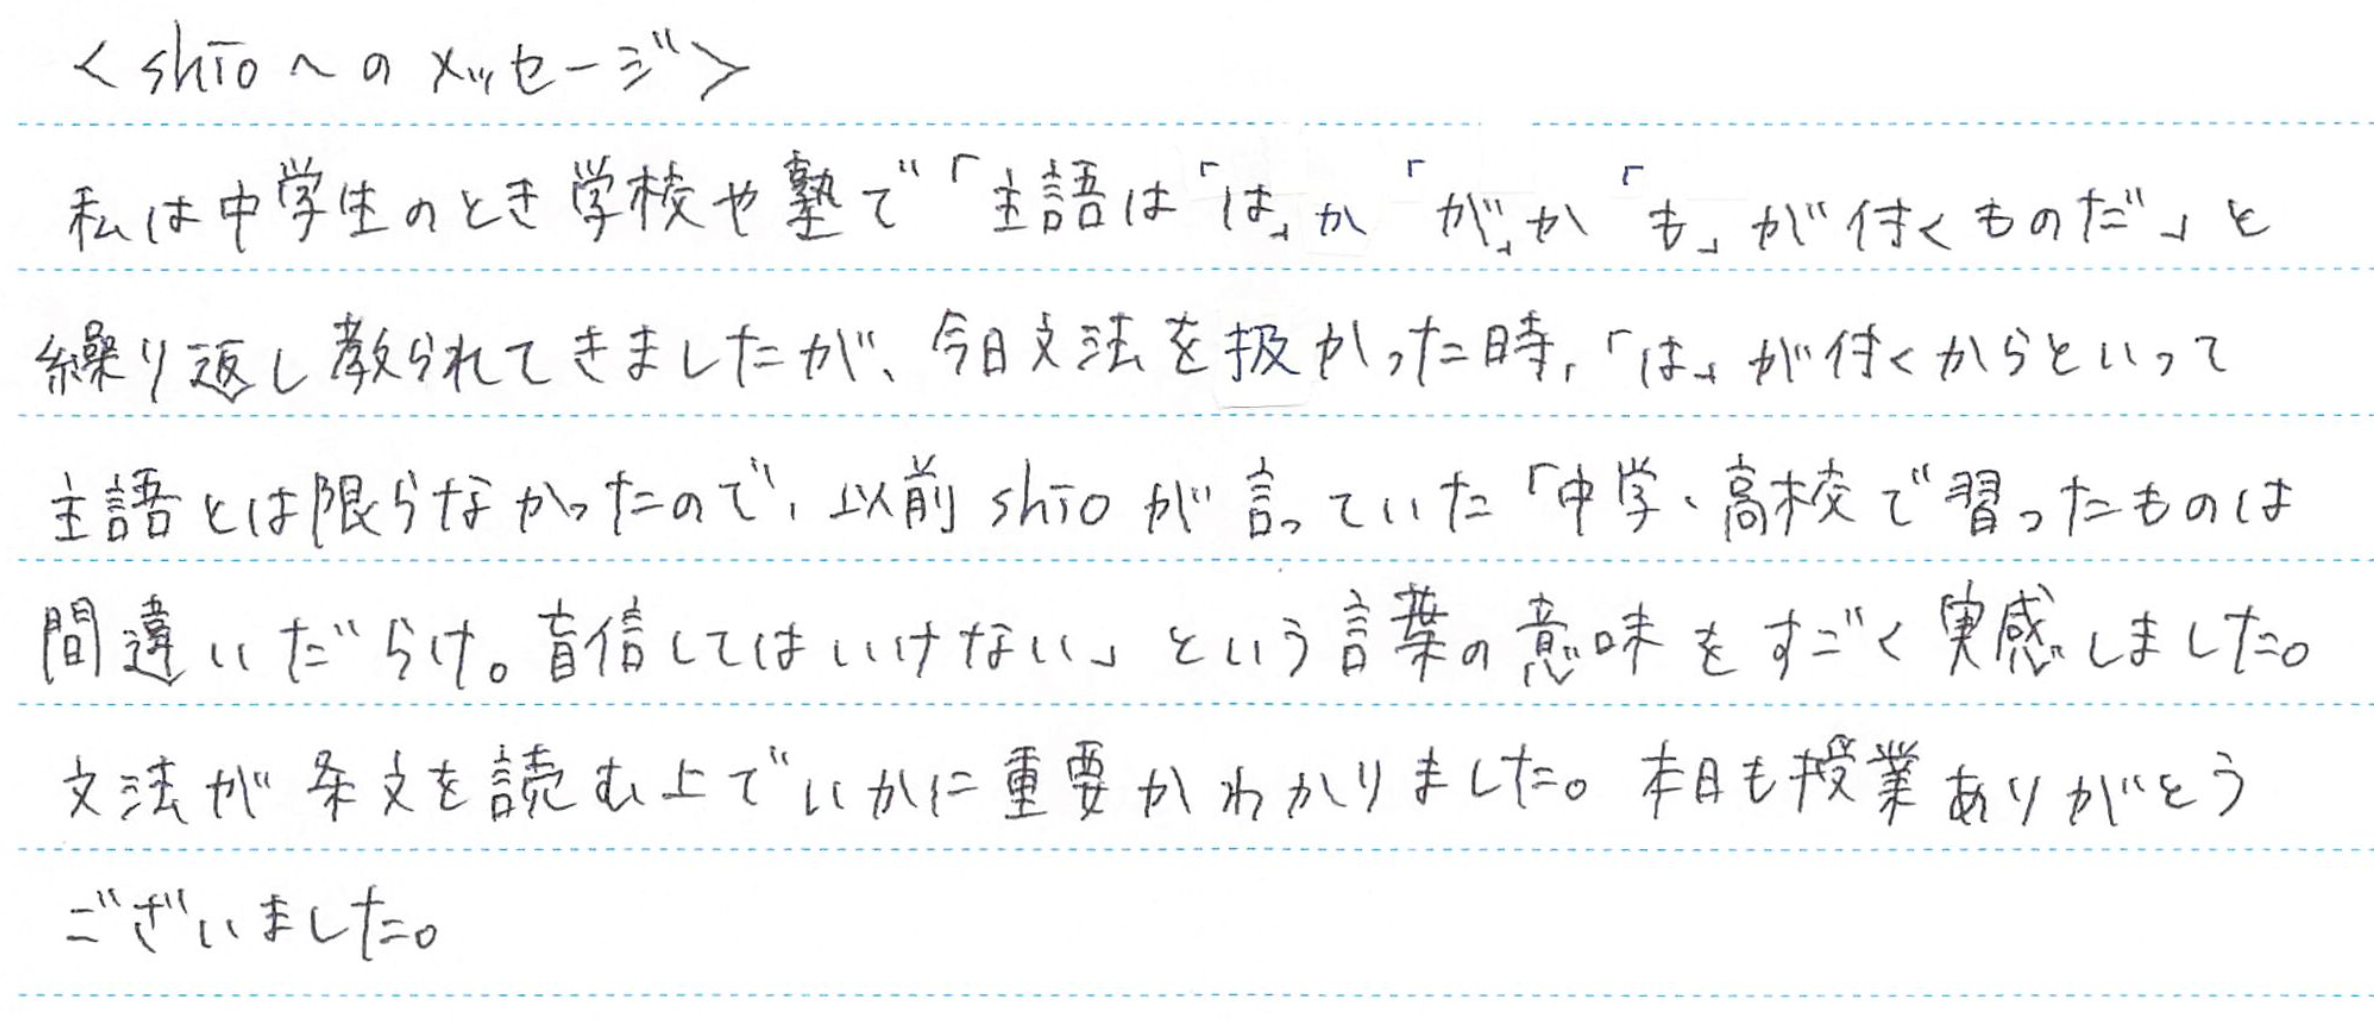 <shioへのメッセージ>
私は中学生のとき学校や塾で「主語は「は」か「が」か「も」が付くものだ」と
繰り返し教られてきましたが、今日文法を扱かった時、「は」が付くからといって
主語とは限らなかったので、以前shioが言っていた「中学、高校で習ったものは
間違いだらけ。盲信してはいけない」という言葉の意味をすごく実感しました。
文法が条文を読む上でいかに重要かわかりました。本日も授業ありがとう
ございました。